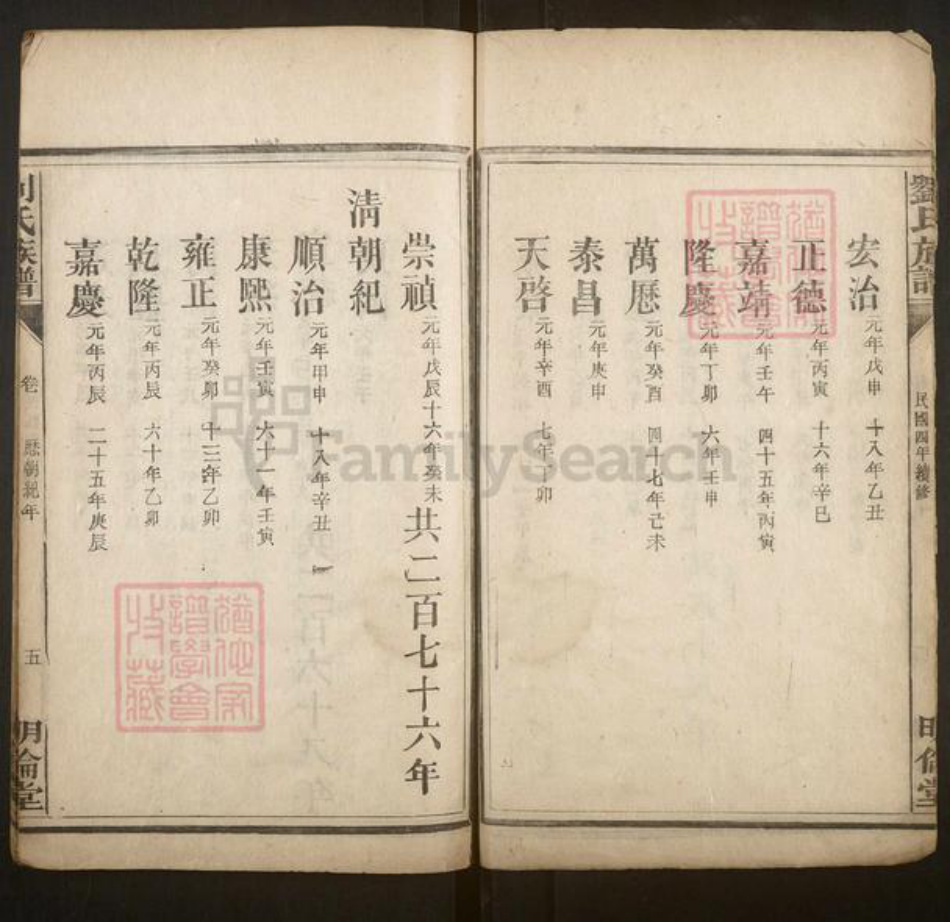 劉氏族譜
民國四年續修
明倫堂
宏治 元年戊申 十八年乙丑
正德 元年丙寅 十六年辛巳
嘉靖 元年壬午 四十五年丙寅
隆慶 元年丁卯 六年壬申
萬厯 元年癸酉 四十七年己未
泰昌 元年庚申
天啓 元年辛酉 七年丁卯
崇禎 元年戊辰十六年癸未共二百七十六年
清朝紀
順治 元年甲申 十八年辛丑
康熙 元年壬寅 六十一年壬寅
雍正 元年癸卯 十三年乙卯
乾隆 元年丙辰 六十年乙卯
嘉慶 元年丙辰 二十五年庚辰
劉氏族譜
卷 歴朝紀年
五
明倫堂
譜學會
收藏
FamilySearch